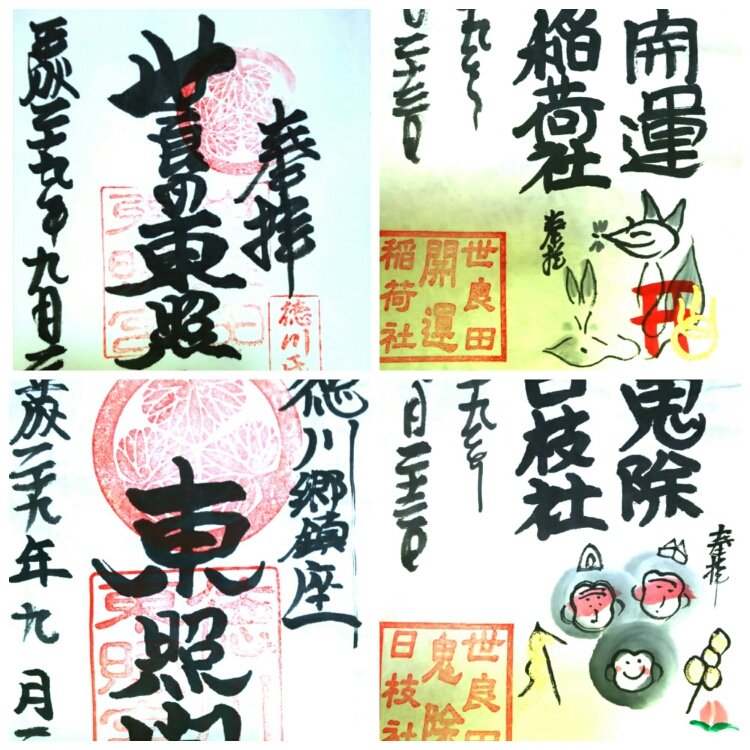 奉拝
世良田東照
平成二十九年九月二
徳川氏
開運
稲荷社
奉拝
九年
月二十三日
世良田
開運
稲荷社
徳川郷鎮座
東照
平成二十九年九月
鬼除
日枝社
奉拝
九年
月二十三日
世良田
鬼除
日枝社